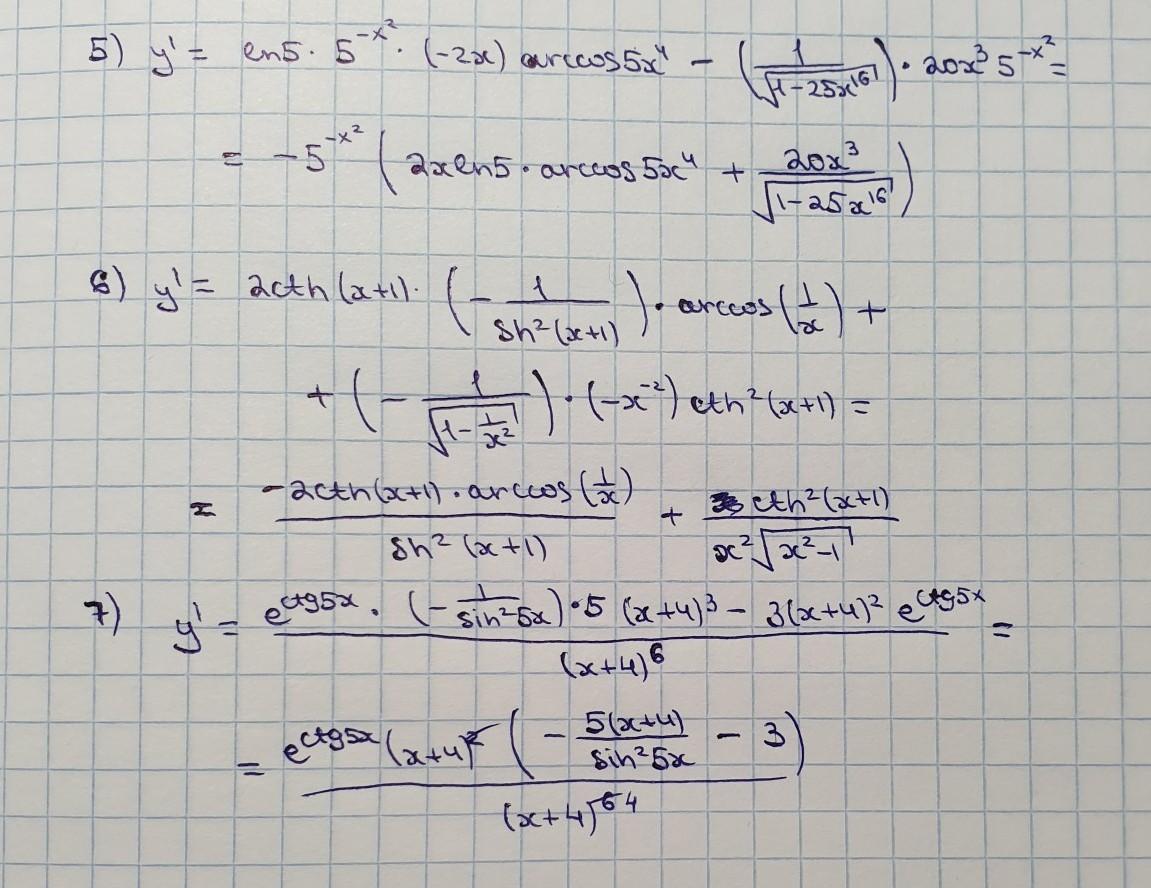 5) y' = ln5 · 5^{-x²} · (-2x) arccos5x⁴ - (1/√(1-25x¹⁶)) · 20x³ 5^{-x²} =
= -5^{-x²} (2xln5 · arccos5x⁴ + 20x³/√(1-25x¹⁶))
6) y' = 2cth(x+1) · (- 1/sh²(x+1)) · arccos(1/x) +
+ (- 1/√(1-1/x²)) · (-x⁻²) cth²(x+1) =
= -2cth(x+1) · arccos(1/x)/sh²(x+1) + cth²(x+1)/x²√(x²-1)
7) y' = e^{ctg5x} · (- 1/sin²5x) · 5 (x+4)³ - 3(x+4)² e^{ctg5x}/(x+4)⁶ =
= e^{ctg5x} (x+4)² (- 5(x+4)/sin²5x - 3)/(x+4)^{6 4}